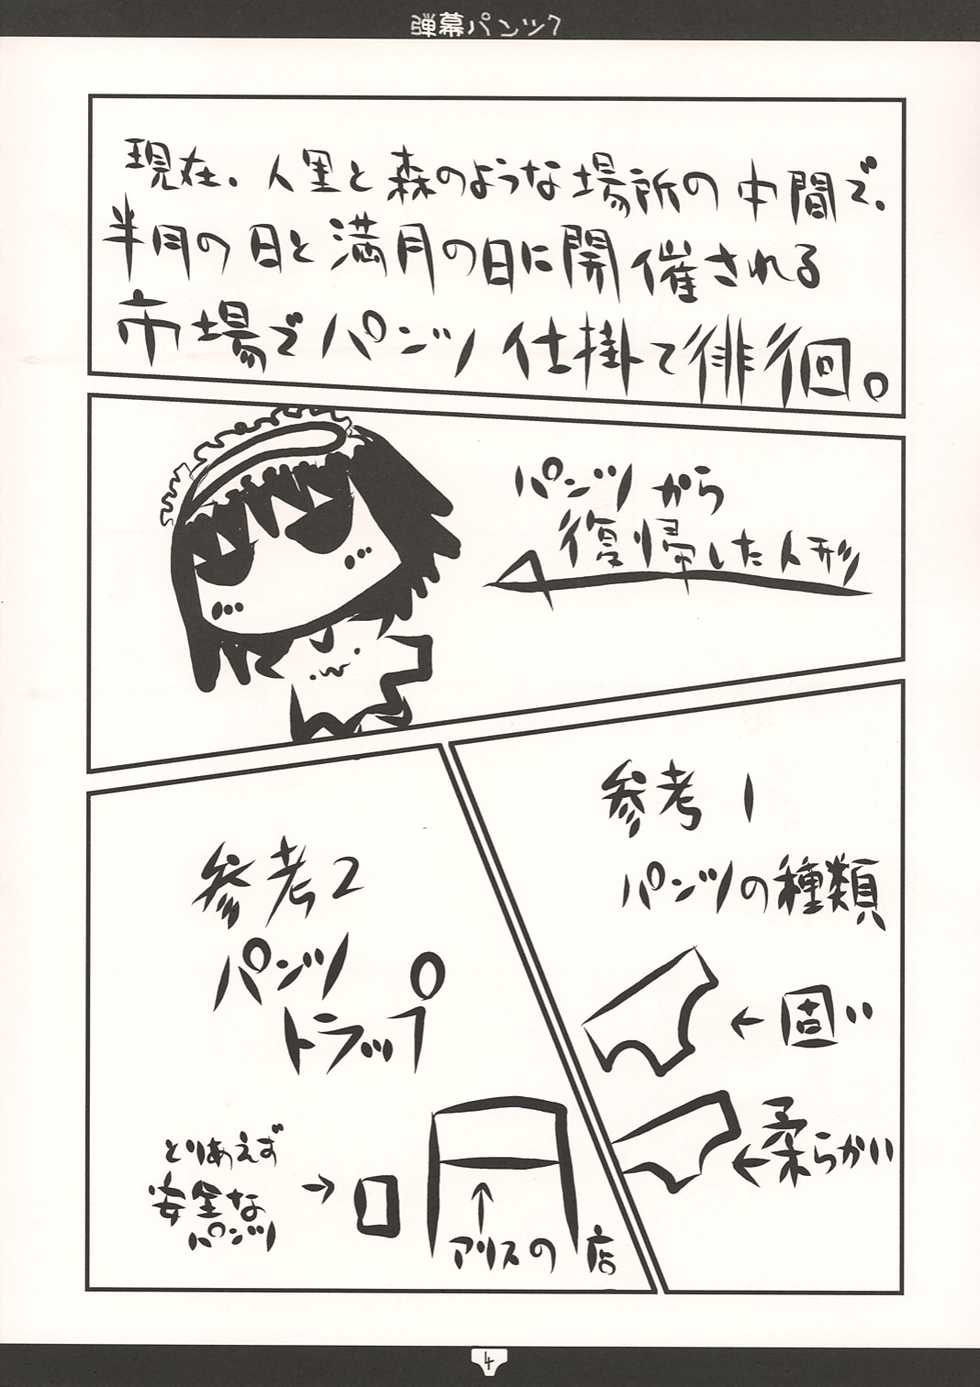 弾幕パンツ7
現在、人里と森のような場所の中間で、
半月の日と満月の日に開催される
市場でパンツ仕掛て徘徊。
パンツから
復帰した人形
参考1
パンツの種類
←固い
←柔らかい
参考2
パンツ
トラップ
とりあえず
安全な
パンツ
→
↑
アリスの店
4